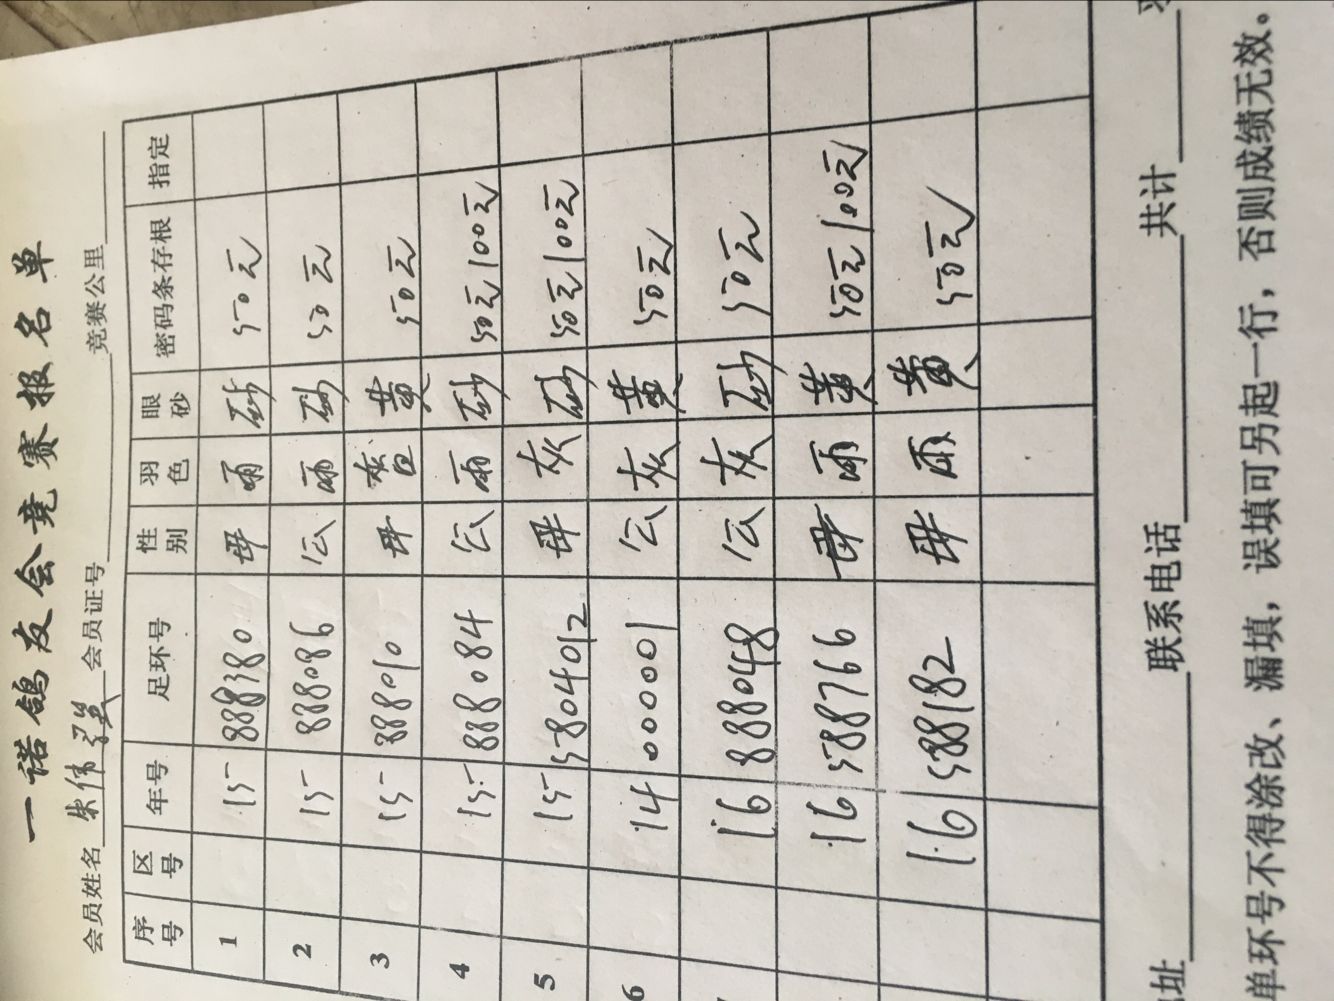 一诺鸽友会竞赛报名单
会员姓名 朱伟 会员证号 竞赛公里
序号 区号 年号 足环号 性别 羽色 眼砂 密码条存根 指定
1 15 888380 母 雨 砂 50元
2 15 888086 公 雨 砂 50元
3 15 888010 母 黄 50元
4 15 888084 公 雨 砂 50元100元
5 15 5804012 母 灰 砂 50元100元
6 14 000001 公 灰 黄 50元
16 888048 公 灰 砂 50元
16 588766 母 雨 黄 50元100元
16 588182 母 雨 黄 50元
址 联系电话 共计
单环号不得涂改、漏填，误填可另起一行，否则成绩无效。